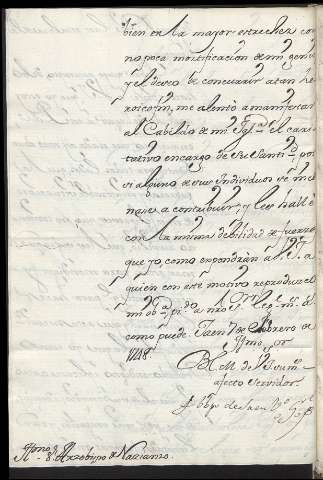 bien en la mayor estrechez con
no poca mortificacion de mi genio
y el deseo de concurrir a tan he
roico fin, me alentó a manifestar
al Cabildo de mi Ygl.ª el cari
tativo encargo de Su Santi.d por
si alguno de sus Individuos se incli
nase a contribuir, y les hallé
con la misma debilidad de fuerzas
que yo, como expondrán a V.S.I. a
quien con este motivo reproduzco
mi ob.ª pido a nro S.or le g.e m.s a.s
como puede. Jaen 7 de Febrero de
1748.
Yllmo S.or
B.L.M. de V.S.I. su m.s
afecto servidor
Obpo de Jaen
Yllmo S.or Arzobispo de Nazianzo.